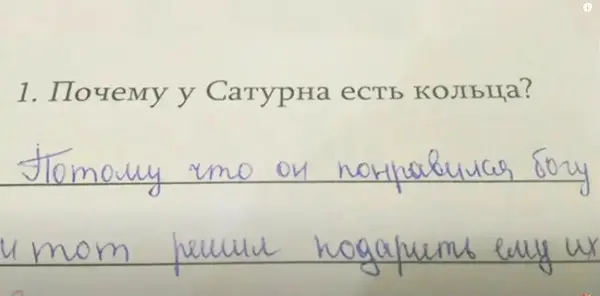 1. Почему у Сатурна есть кольца?
Потому что он понравился богу
и тот решил подарить ему их